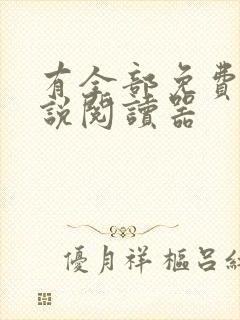 有全部免費
說閱讀器
優月祥樞呂純